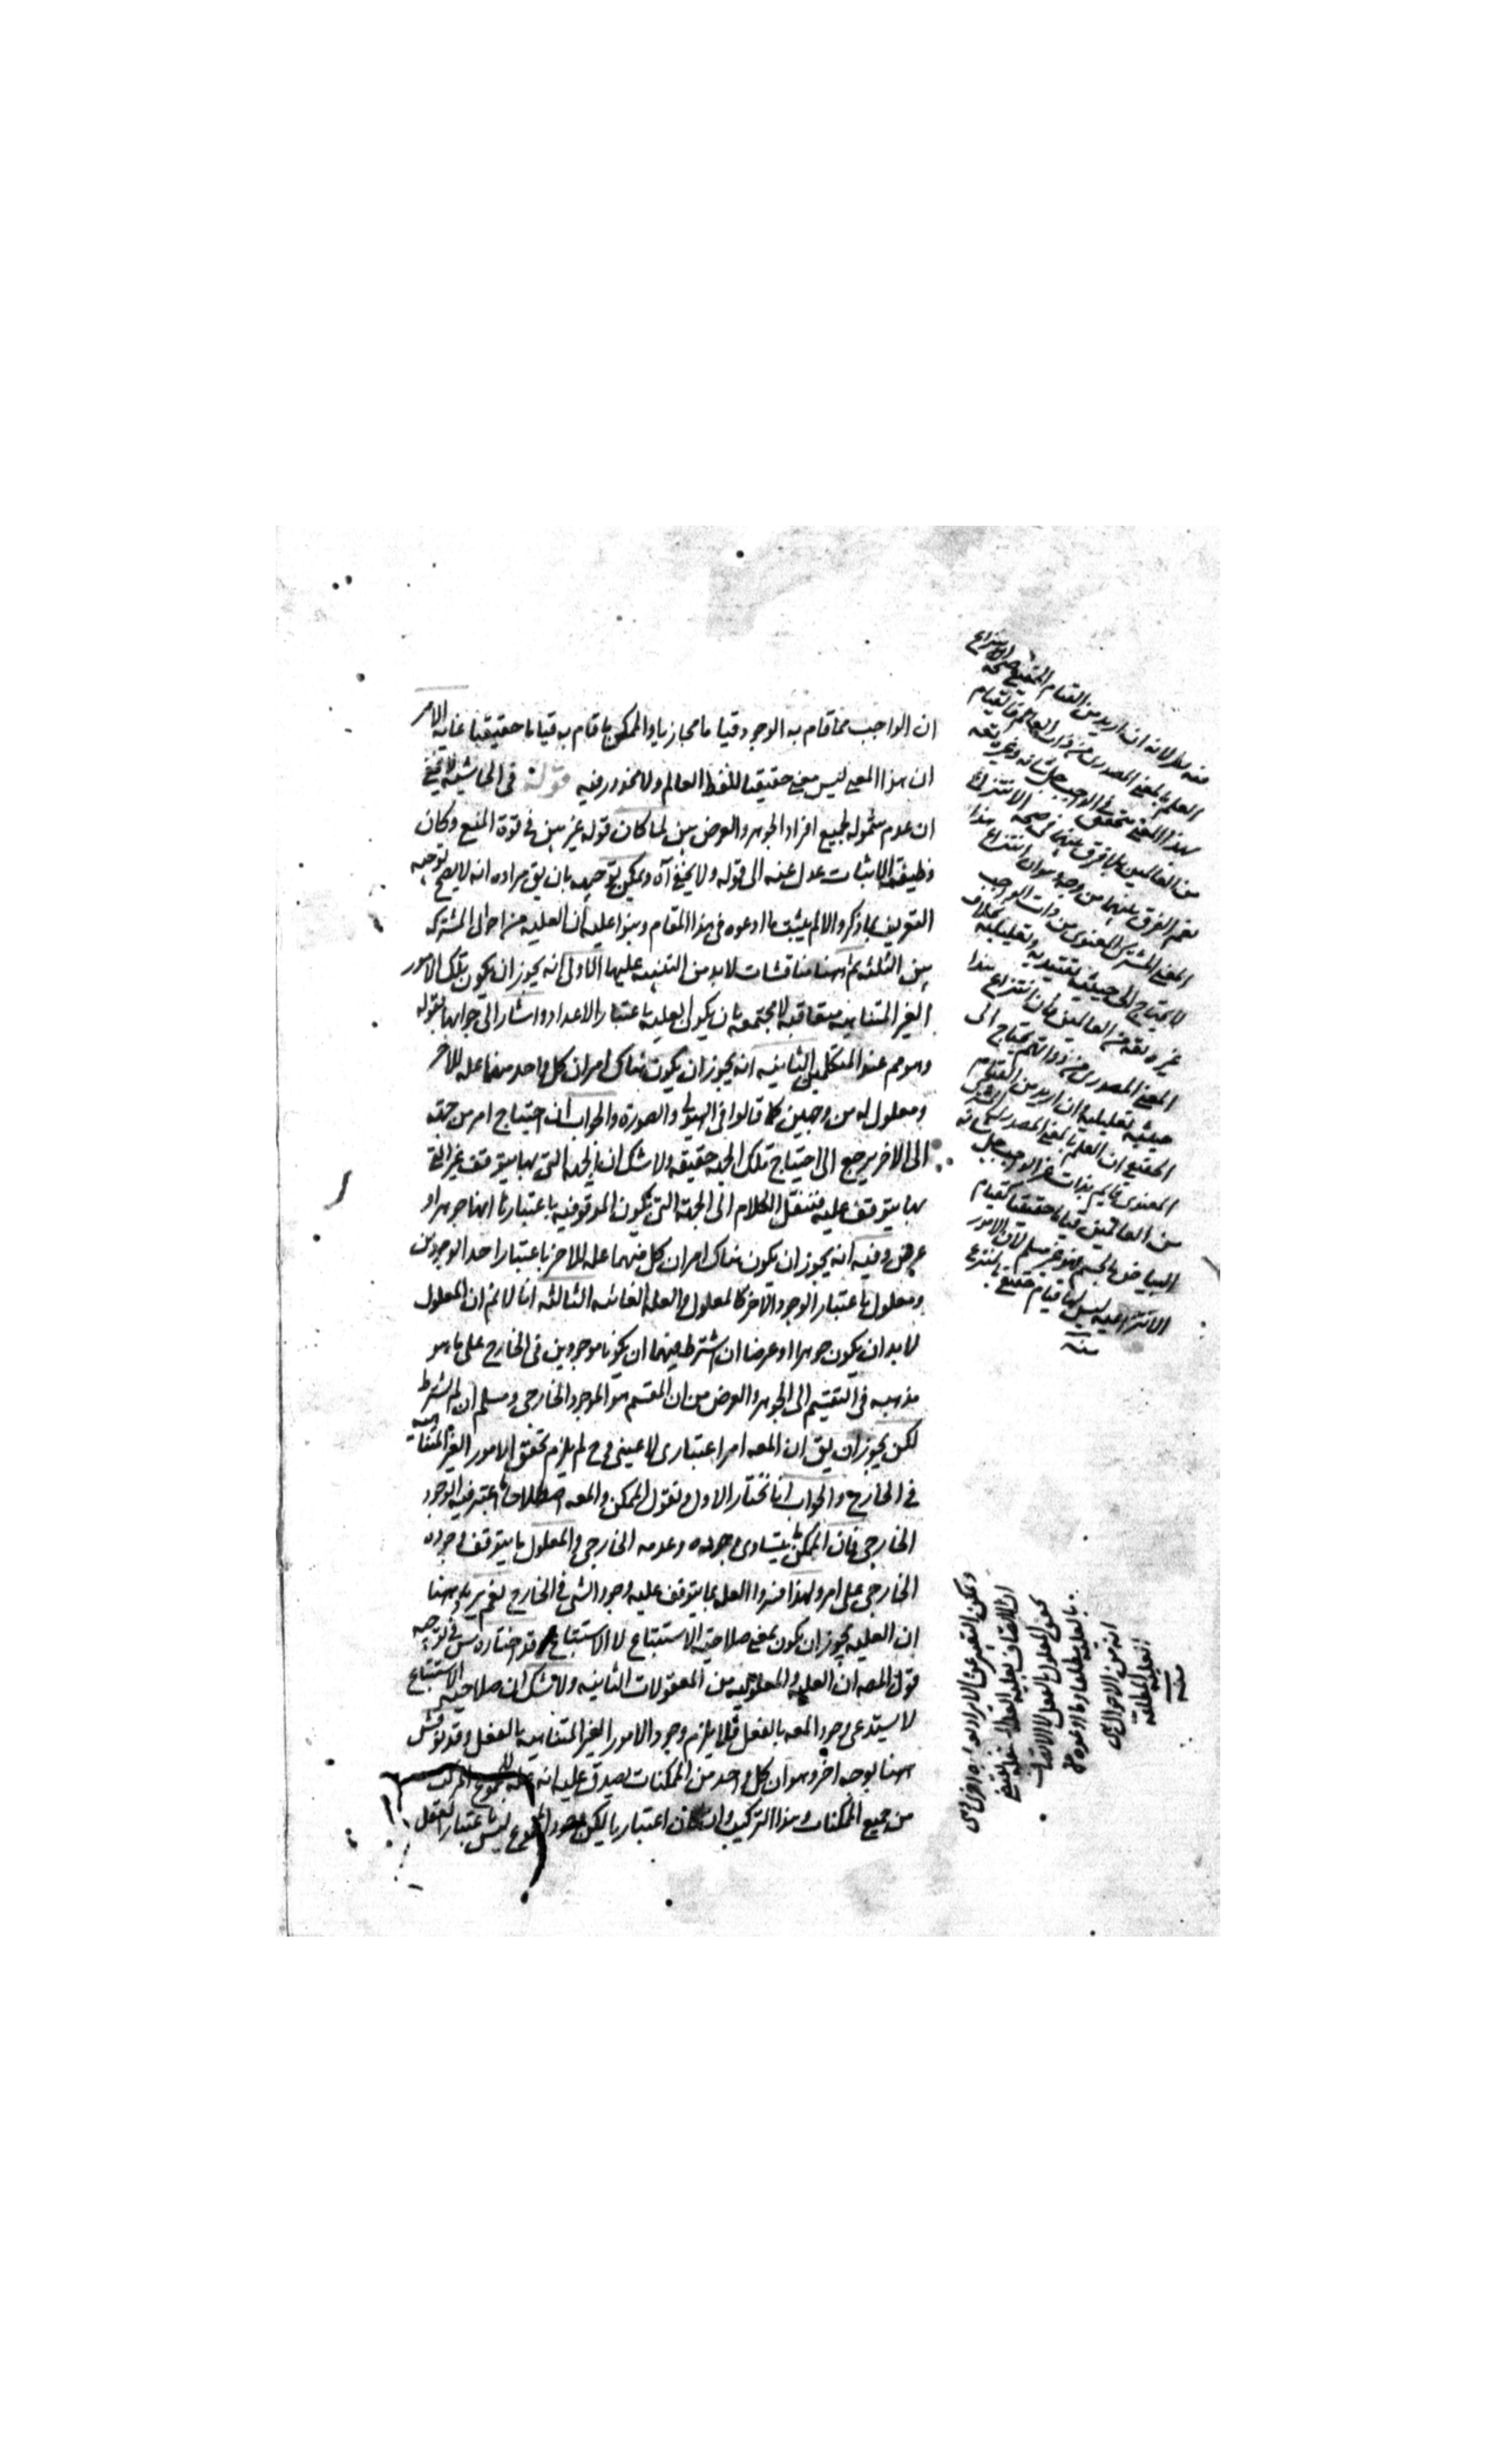 ان الواجب مما قام به الوجود قياما مجازيا والممكن ما قام به قياما حقيقيا غاية الامر
ان هذا المعنى ليس معنى حقيقيا للفظ العالم ولا محذور فيه قوله في الحاشية لا يخفى
ان عدم شموله لجميع افراد الجوهر والعرض بين لما كان قوله غير بين في قوة المنع وكان
وظيفته الاثبات عدل عنه الى قوله ولا يخفى آه ويمكن توجيهه بان يق مراده انه لا يصح توجيه
التعريف بما ذكر والا لم يثبت ما ادعوه في هذا المقام وبنوا عليه ان العلية من احوال المشترك
بين الثلثة ثم ههنا مناقشات لا بد من التنبيه عليها الاولى انه يجوز ان يكون تلك الامور
الغير المتناهية متعاقبة لا مجتمعة بان يكون العلية باعتبار الاعداد واشار الى جوابها بقوله
وهو مم عند المتكلمين الثانية انه يجوز ان يكون هناك امران كل واحد منهما علة للاخر
ومعلول له من وجهين كما قالوا في الهيولى والصورة والجواب ان احتياج امر من جهة
الى الاخر يرجع الى احتياج تلك الجهة حقيقة ولا شك ان الجهة التي بها يتوقف غير التي
بها يتوقف عليه فننقل الكلام الى الجهة التي تكون الموقوفية باعتبارها انها جوهر او
عرض وفيه انه يجوز ان يكون هناك امران كل منهما علة للاخر باعتبار احد الوجودين
ومعلول باعتبار الوجود الاخر كالمعلول والعلة الغائية الثالثة انا لا نم ان المعلول
لا بد ان يكون جوهرا او عرضا ان اشترط فيهما ان يكونا موجودين في الخارج على ما هو
مذهبه في التقسيم الى الجوهر والعرض من ان المقسم هو الموجود الخارجي ومسلم ان لم يشترط
لكن يجوز ان يق ان المعه امر اعتباري لا عيني وح لم يلزم تحقق الامور الغير المتناهية
في الخارج والجواب انا نختار الاول ونقول الممكن والمعه اصطلاحا اعتبر فيه الوجود
الخارجي فان الممكن ما يتساوى وجوده وعدمه الخارجي والمعلول ما يتوقف وجوده
الخارجي على امر ولهذا فسروا العلة بما يتوقف عليه وجود الشئ في الخارج نعم يرد ههنا
ان العلية يجوز ان يكون بمعنى صلاحية الاستتباع لا الاستتباع وقد اختاره في توجيه
قول المصه ان العلية والمعلولية من المعقولات الثانية ولا شك ان صلاحية الاستتباع
لا يستدعي وجود المعه بالفعل فلا يلزم وجود الامور الغير المتناهية بالفعل وقد نوقش
ههنا بوجه اخر وهو ان كل واحد من الممكنات يصدق عليه انه علة للمجموع المركب
من جميع الممكنات وهذا التركيب وان كان اعتباريا لكن وجود المجموع ليس باعتبار العقل
العلم بالمعنى المصدري من ذات العالم فالقيام
بهذا المعنى متحقق في الواجب جل شانه وغيره
من العالمين بلا فرق بينهما في صحة الانتزاع
نعم الفرق بينهما من وجه وهو ان انتزاع هذا
المعنى المصدري من ذات الواجب
لا يحتاج الى حيثية تقييدية وتعليلية بخلاف
غيره من العالمين فان انتزاع هذا
المعنى المصدري من ذواتهم يحتاج الى
حيثية تعليلية وان اريد من القيام
الحقيقي ان العلم بالمعنى المصدري
قائم بذات غير الواجب جل شانه
من العالمين قياما حقيقيا كقيام
البياض بالجسم فهو غير مسلم لان الامور
الانتزاعية ليس لها قيام حقيقي بالمنتزع
منه